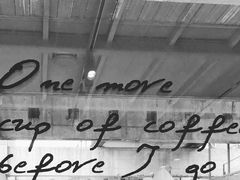 One more
cup of coffee
before I go